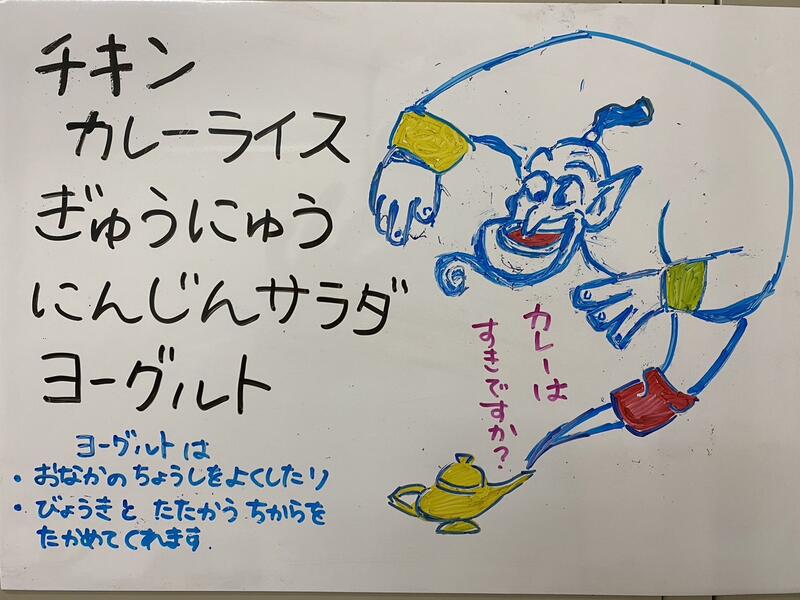 チキン
カレーライス
ぎゅうにゅう
にんじんサラダ
ヨーグルト
ヨーグルトは
・おなかのちょうしをよくしたり
・びょうきと たたかう ちからを
たかめてくれます
カレーは
すきですか?